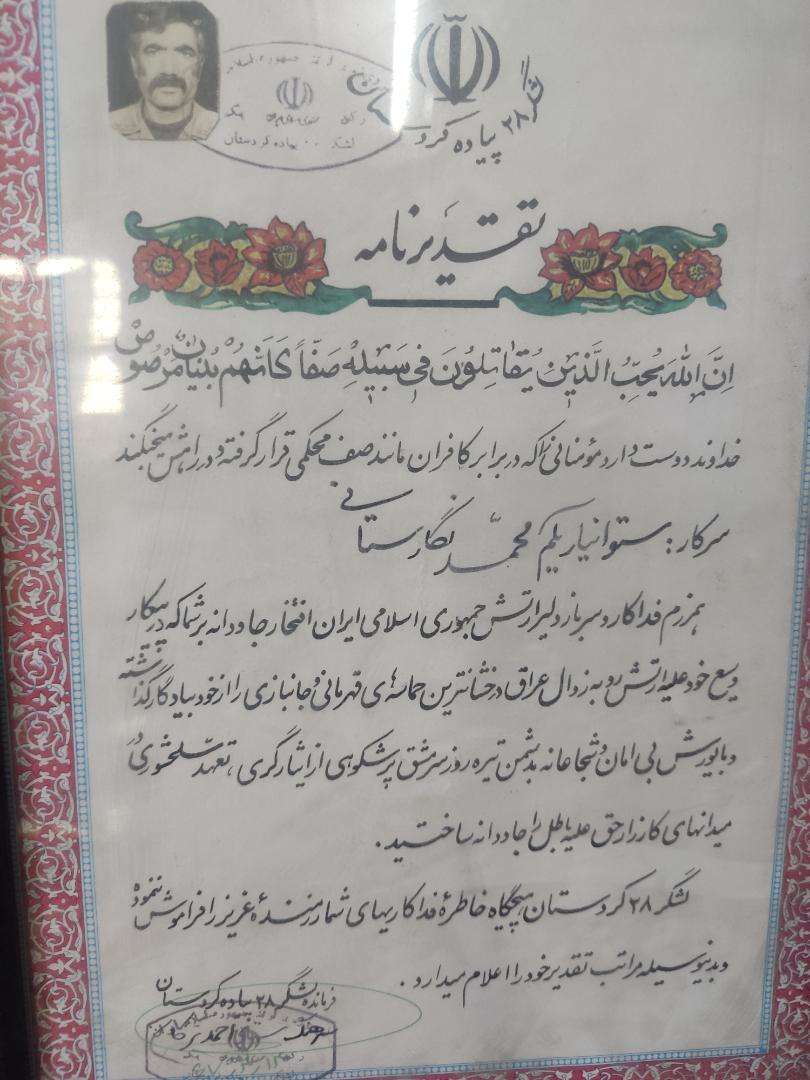 لشگر ۲۸ پیاده کردستان
لشگر ۰۰ پیاده کردستان
تقدیرنامه
اِنَّ اللهَ یُحِبُّ الَّذینَ یُقاتِلُونَ فی سَبیلِهِ صَفّاً کَاَنَّهُمْ بُنْیانٌ مَرْصُوصٌ
خداوند دوست دارد مؤمنانی را که در برابر کافران مانند صف محکمی قرار گرفته و در راهش میجنگند
سرکار: ستوانیار یکم محمد نگارستانی
همرزم فداکار و سرباز دلیر ارتش جمهوری اسلامی ایران افتخار جاودانه بر شما که در پیکار
وسیع خود علیه ارتش رو به زوال عراق درخشانترین حماسه های قهرمانی و جانبازی را از خود بیادگار گذاشته
و با یورش بی امان و شجاعانه بدشمن تیره روز سرمشق پرشکوهی از ایثارگری، تعهد سلحشوری در
میدانهای کارزار حق علیه باطل را جاودانه ساختید.
لشگر ۲۸ کردستان هیچگاه خاطرهٔ فداکاریهای شما رزمندهٔ عزیز را فراموش ننموده
و بدینوسیله مراتب تقدیر خود را اعلام میدارد.
فرمانده لشگر ۲۸ پیاده کردستان
سرهنگ احمد ترکان